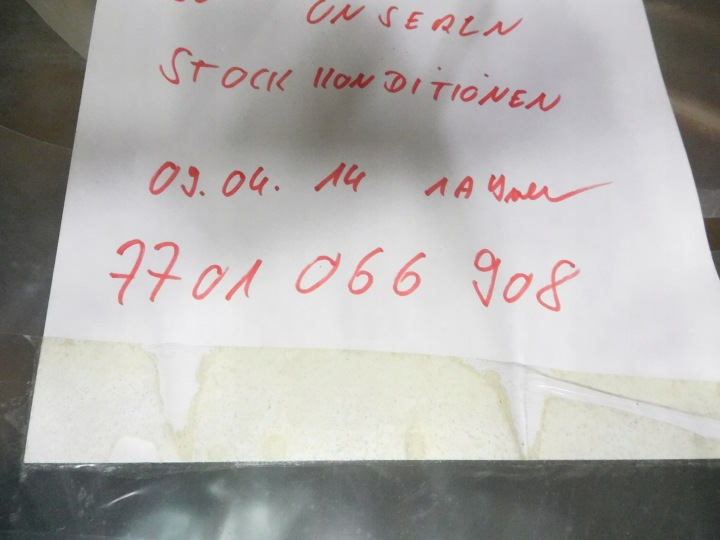 UNSERLN
STOCK KONDITIONEN
09.04. 14
7701 066 908